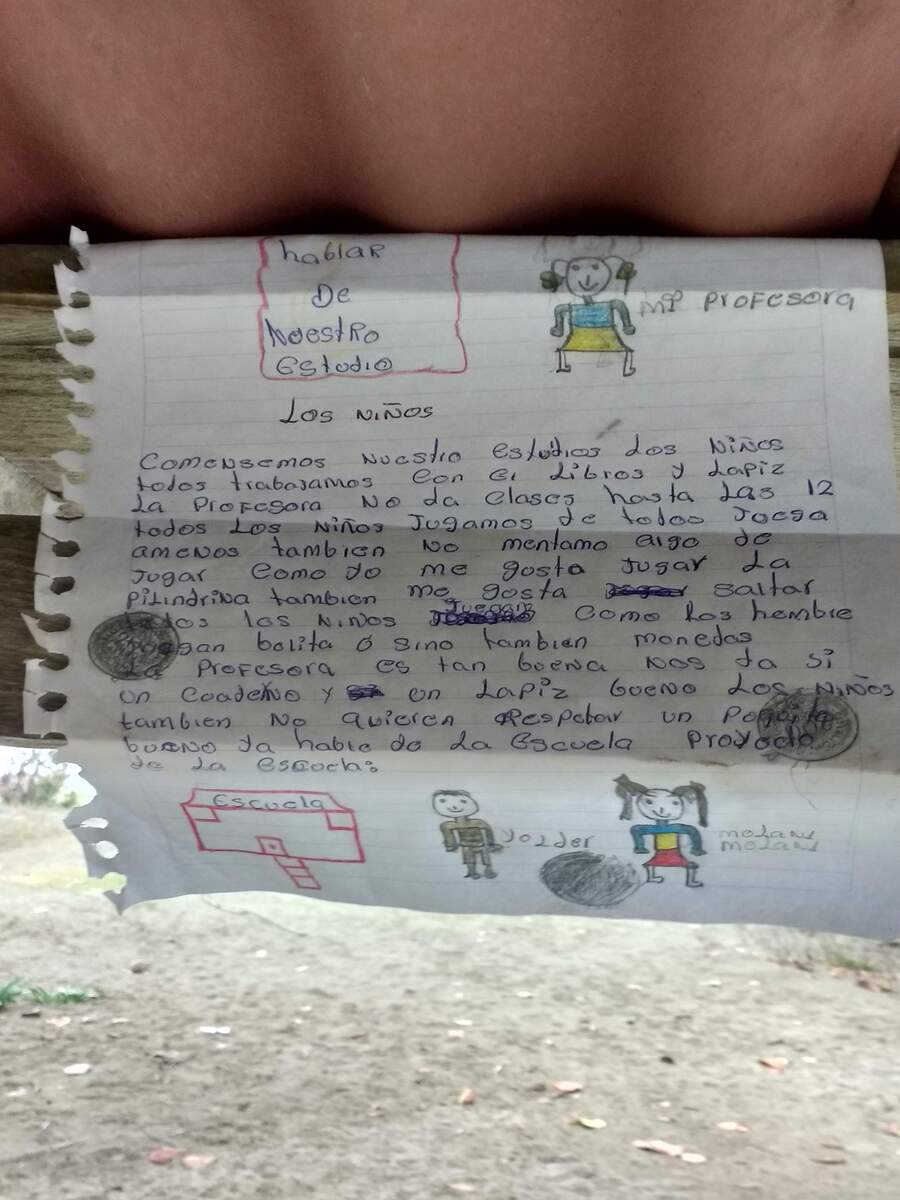 hablar
De
Nuestro
estudio
Mi PROFESORA
LOS NIÑOS
Comensemos Nuestro estudios Los Niños
todos trabajamos con el Libros y Lapiz
La Profesora No da clases hasta Las 12
todos Los Niños Jugamos de todoo Juega
amenos tambien No mentamo algo de
Jugar Como yo me gosta Jugar La
Pilindrina tambien me gosta saltar
todos los Niños Juegan Como Los hembre
Juegan bolita ó sino tambien monedas
La Profesora es tan buena Nos da si
un Coaderno y un Lapiz bueno Los Niños
tambien No quieren Respetar un Poquito
bueno ya hable de La escuela Proyecto
de La escuela:
Escuela
yolder